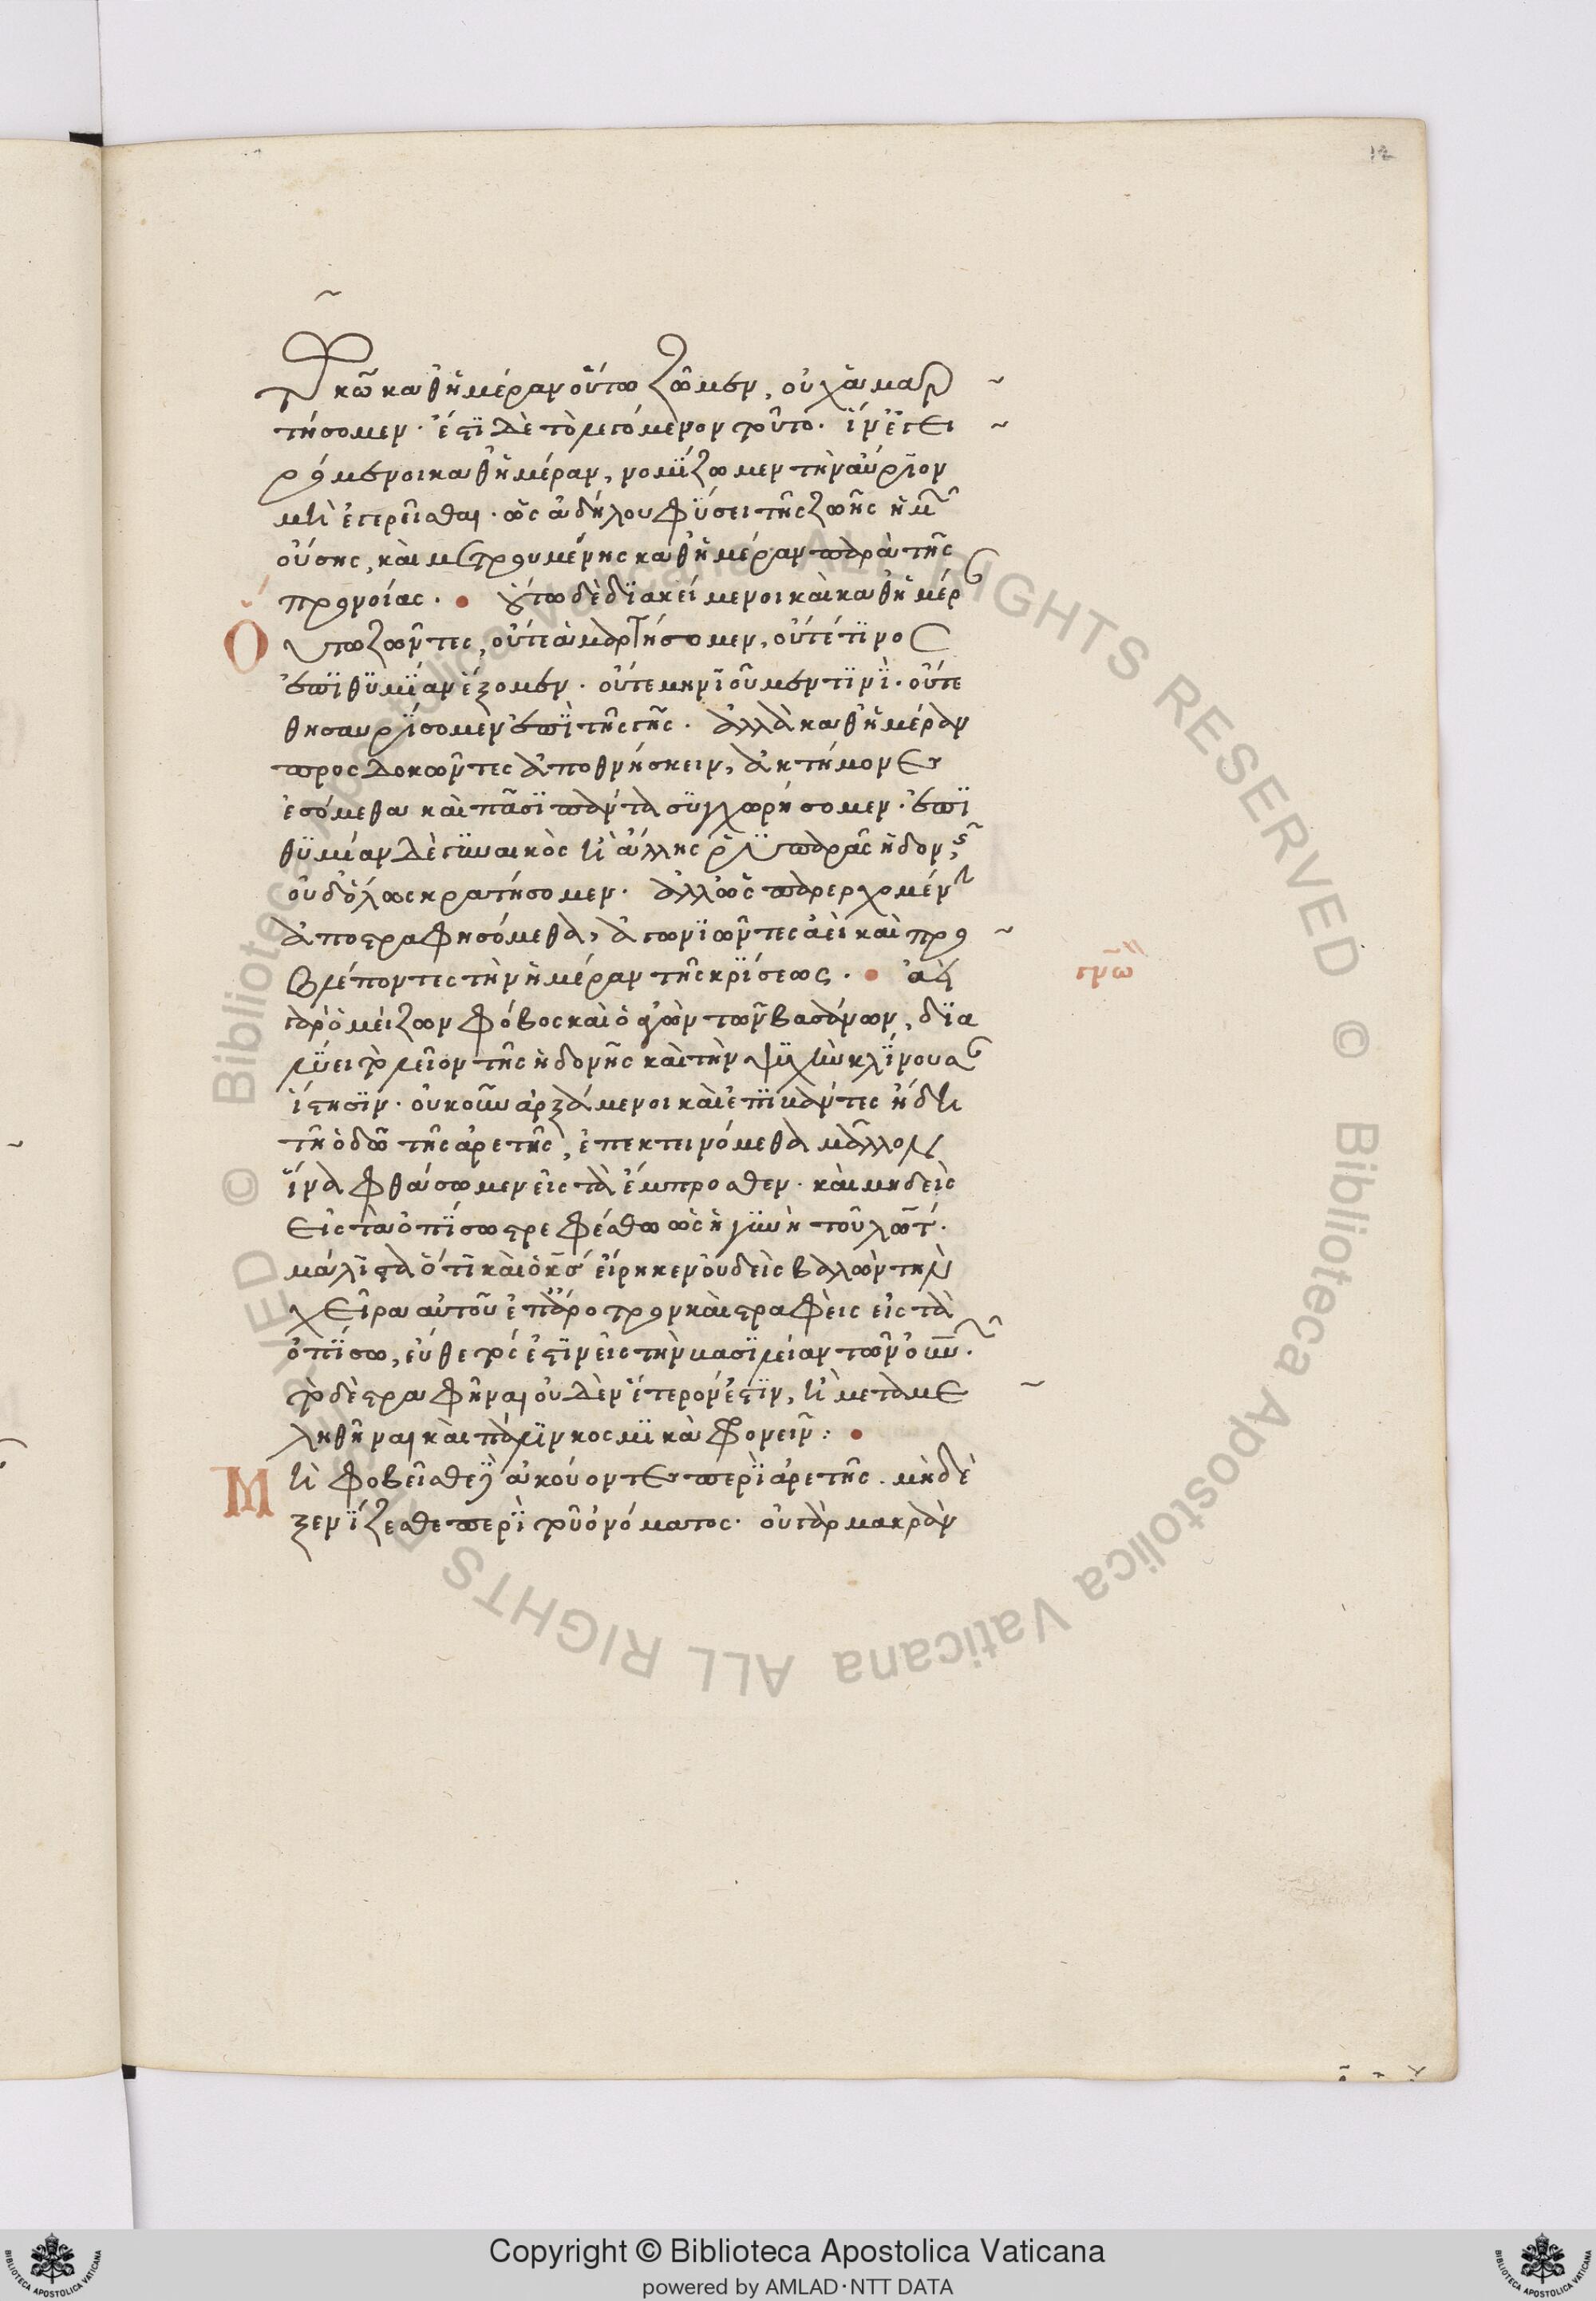 12
σκω καθ' ἡμέραν οὕτω ζῶμεν, οὐχ ἁμαρ
τήσομεν. ἔστι δὲ τὸ λεγόμενον τοῦτο. ἵν' ἐγει
ρόμενοι καθ' ἡμέραν, νομίζωμεν τὴν αὔριον
μὴ ἐγερεῖσθαι. ὡς ἀδήλου φύσει τῆς ζωῆς ἡμῶν
οὔσης, καὶ μετρουμένης καθ' ἡμέραν παρὰ τῆς
προνοίας. οὕτω δὲ διακείμενοι καὶ καθ' ἡμέραν
Ὁ οὕτω ζῶντες, οὔτε ἁμαρτήσομεν, οὔτέ τινος
ἐπιθυμίαν ἕξομεν. οὔτε μηνιοῦμεν τινὶ. οὔτε
θησαυρίσομεν ἐπὶ τῆς γῆς. ἀλλὰ καθ' ἡμέραν
προσδοκῶντες ἀποθνήσκειν, ἀκτήμονες
ἐσόμεθα καὶ πᾶσι πάντα συγχωρήσομεν. ἐπι
θυμίαν δὲ γυναικὸς ἢ ἄλλης ῥυπαρᾶς ἡδονῆς
οὐδ' ὅλως κρατήσομεν. ἀλλ' ὡς παρερχομένην
ἀποστραφησόμεθα, ἀγωνιῶντες ἀεὶ καὶ προ
βλέποντες τὴν ἡμέραν τῆς κρίσεως. ἀεὶ
γὰρ ὁ μείζων φόβος καὶ ὁ ἀγὼν τῶν βασάνων, δια
λύει τὸ λεῖον τῆς ἡδονῆς καὶ τὴν ψυχὴν κλίνουσαν
ἵστησιν. οὐκοῦν ἀρξάμενοι καὶ ἐπιβάντες ἤδη
τῇ ὁδῷ τῆς ἀρετῆς, ἐπεκτεινόμεθα μᾶλλον
ἵνα φθάσωμεν εἰς τὰ ἔμπροσθεν. καὶ μηδεὶς
εἰς τὰ ὀπίσω στρεφέσθω ὡς ἡ γυνὴ τοῦ λώτ.
μάλιστα ὅτι καὶ ὁ κς εἴρηκεν οὐδεὶς βαλὼν τὴν
χεῖρα αὐτοῦ ἐπ' ἄροτρον καὶ στραφεὶς εἰς τὰ
ὀπίσω, εὔθετός ἐστιν εἰς τὴν βασιλείαν τῶν οὐνῶν.
τὸ δὲ στραφῆναι οὐδὲν ἕτερόν ἐστιν, ἢ μεταμε
ληθῆναι καὶ πάλιν κοσμικὰ φρονεῖν:
Μὴ φοβεῖσθε δὲ ἀκούοντες περὶ ἀρετῆς. μηδὲ
ξενίζεσθε περὶ τοῦ ὀνόματος. οὐ γὰρ μακρὰν
Copyright © Biblioteca Apostolica Vaticana
powered by AMLAD・NTT DATA